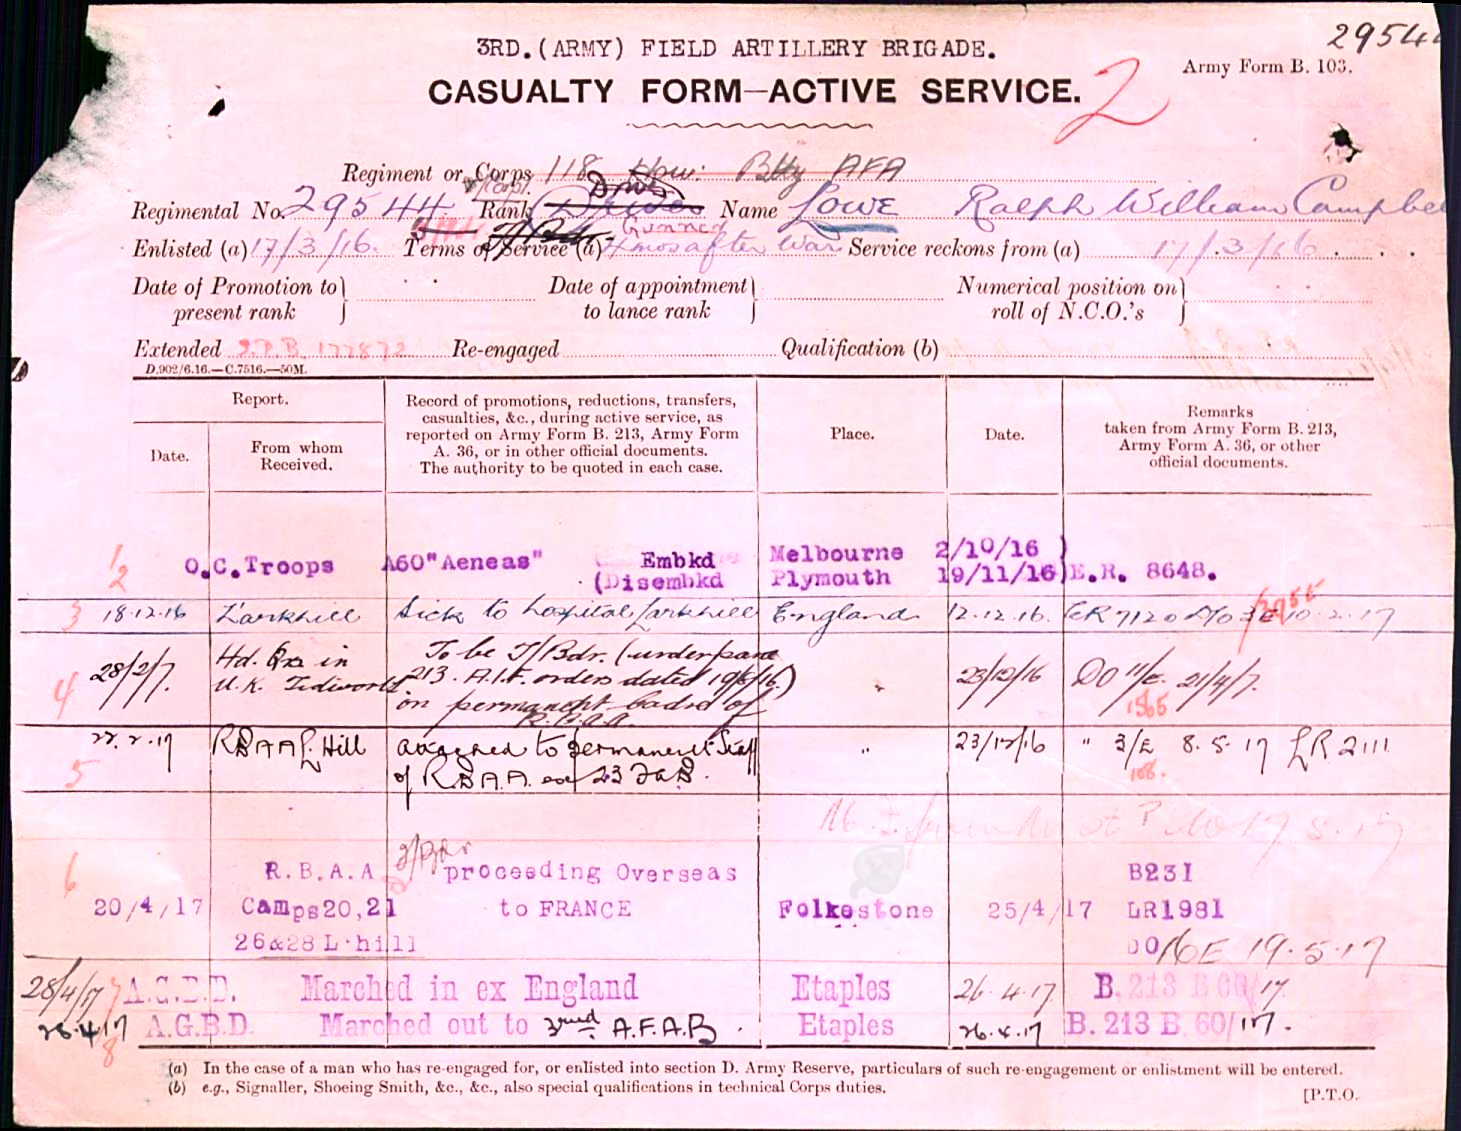 29544
3RD. (ARMY) FIELD ARTILLERY BRIGADE.
Army Form B. 103.
CASUALTY FORM—ACTIVE SERVICE.
2
Regiment or Corps 118 How: Btty AFA
Regimental No. 29544 Rank Driver Name LOWE Ralph William Campbel
Gunner
Enlisted (a) 17/3/16. Terms of Service (a) 4 mos after War Service reckons from (a) 17/3/16
Date of Promotion to present rank } Date of appointment to lance rank } Numerical position on roll of N.C.O.'s }
Extended Re-engaged Qualification (b)
D.902/6.16.—C.7516.—50M.
Report.
Date. From whom Received.
Record of promotions, reductions, transfers, casualties, &c., during active service, as reported on Army Form B. 213, Army Form A. 36, or in other official documents. The authority to be quoted in each case.
Place.
Date.
Remarks taken from Army Form B. 213, Army Form A. 36, or other official documents.
1 O.C. Troops A60 "Aeneas" Embkd Melbourne 2/10/16 )
2 (Disembkd Plymouth 19/11/16) E.R. 8648.
3 18.12.16 Larkhill Sick to hospital Larkhill England 12.12.16. 10.2.17
4 28/2/7. Hd. Qrs in To be T/Bdr. (under para
U.K. Tidworth 213. A.I.F. orders dated ) 23/12/16 DO 21/4/7.
on permanent cadre of
R.B.A.A.
5 22.2.17 RBAA L. Hill attached to permanent Staff " 23/12/16 " 3/E 8.5.17 LR 2111
of R.B.A.A. ex 23
6 R.B.A.A. T/Bdr proceeding Overseas B231
20/4/17 Camps 20, 21 to FRANCE Folkestone 25/4/17 LR1981
26 & 28 L. hill DO 16E 19.5.17
28/4/17 7 A.G.B.D. Marched in ex England Etaples 26.4.17 B. 213 B 60/17
26.4.17 8 A.G.B.D. Marched out to 3rd A.F.A.B. Etaples 26.4.17 B. 213 B. 60/17.
(a) In the case of a man who has re-engaged for, or enlisted into section D. Army Reserve, particulars of such re-engagement or enlistment will be entered.
(b) e.g., Signaller, Shoeing Smith, &c., &c., also special qualifications in technical Corps duties.
[P.T.O.